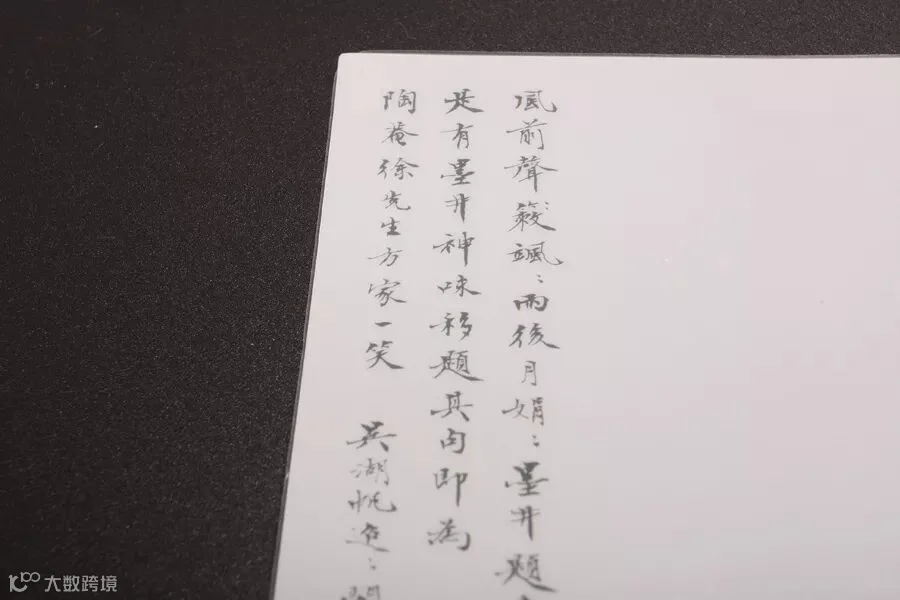 風前聲簌颯：雨後月娟：墨井題
是有墨井神味移題其句即為
陶菴徐先生方家一笑
吳湖帆
大数跨境